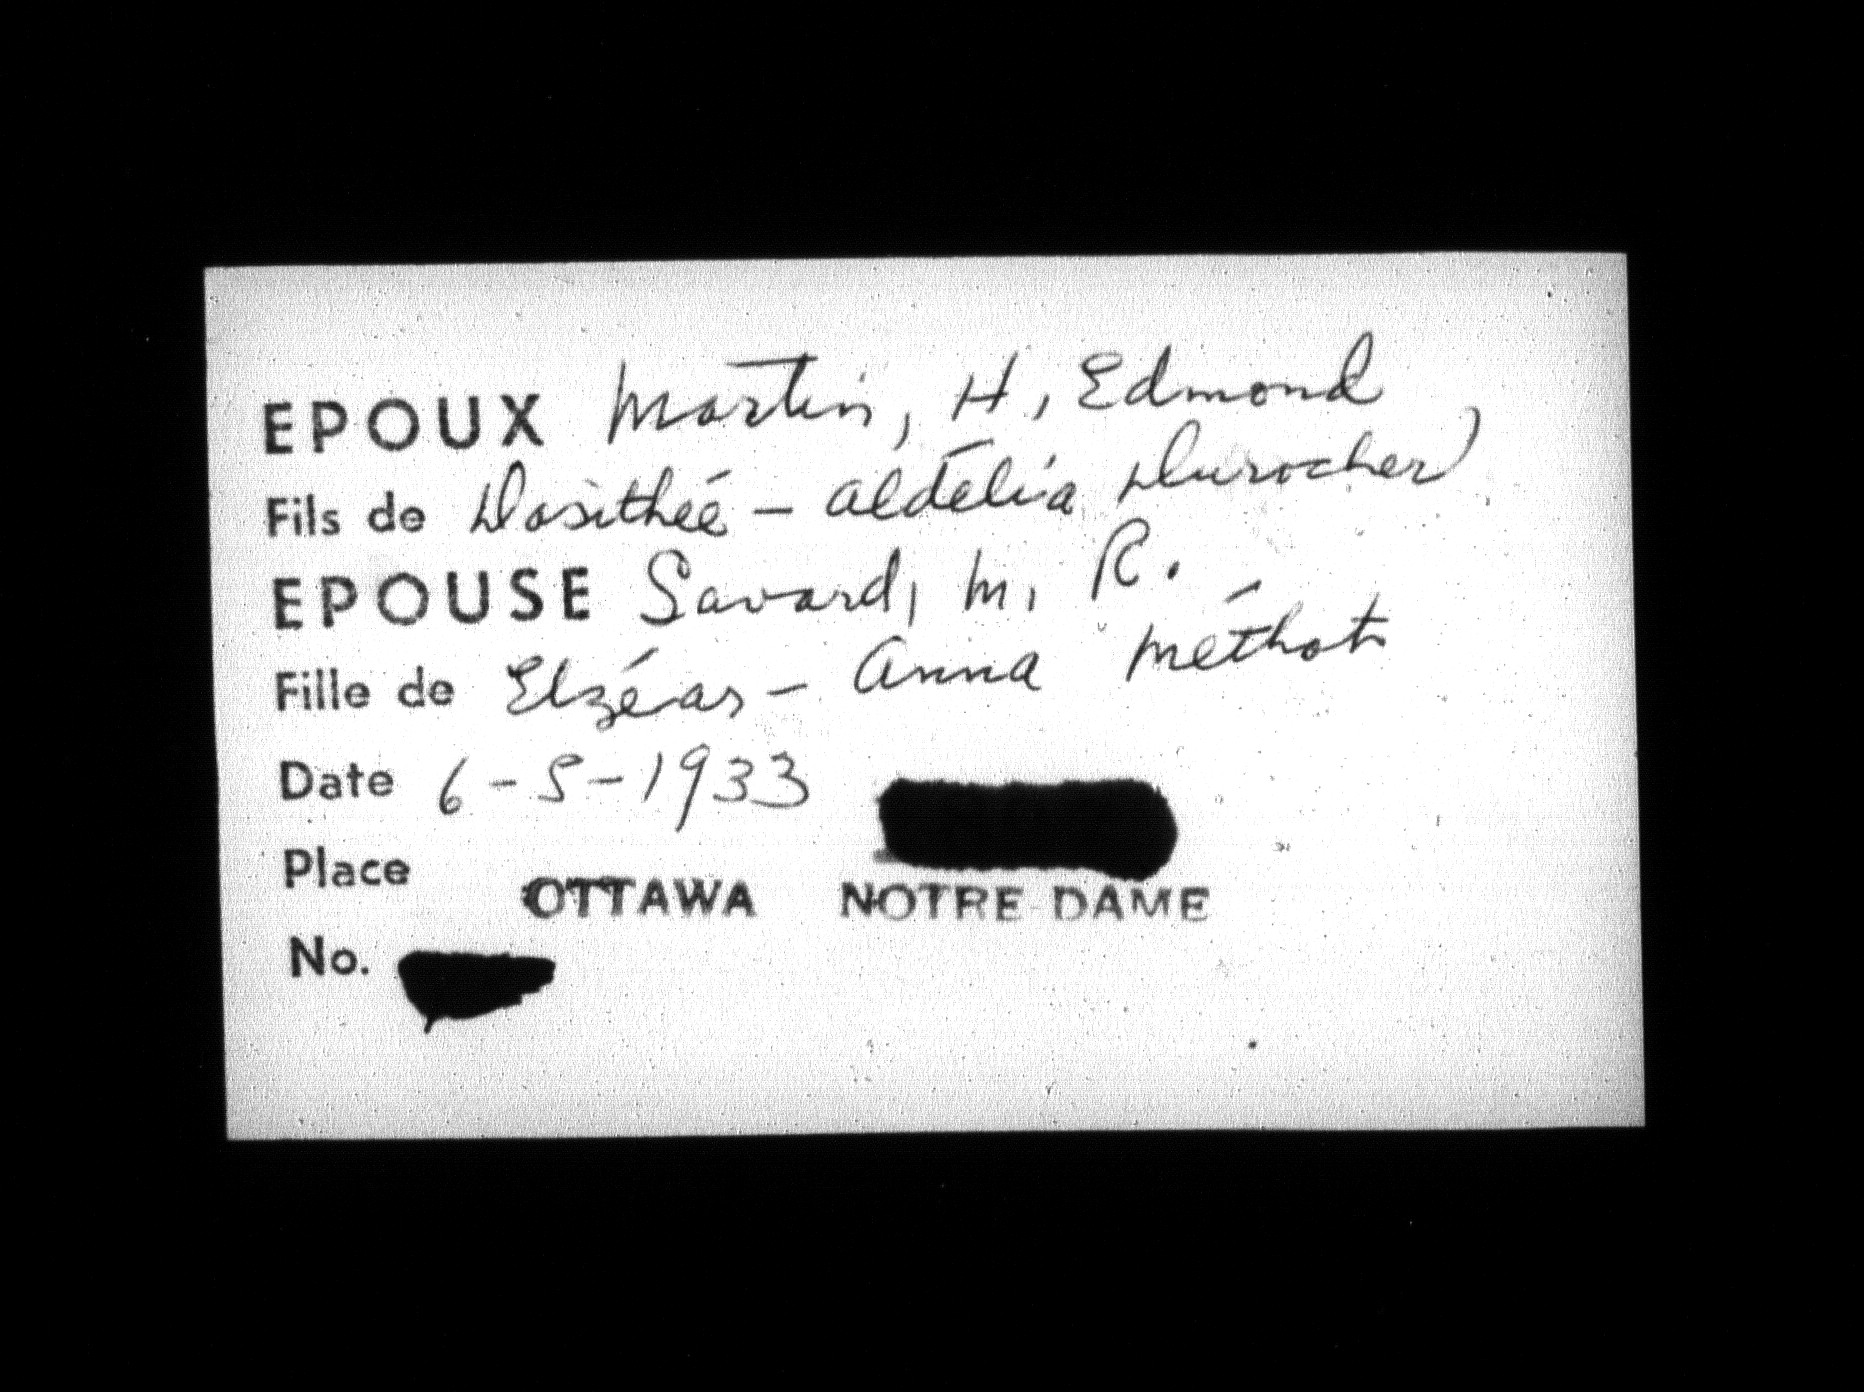 EPOUX Martin, H, Edmond
Fils de Dosithée - Aldélia Durocher
EPOUSE Savard, M. R.
Fille de Elzéar - Anna Méthot
Date 6-5-1933
Place OTTAWA NOTRE-DAME
No.